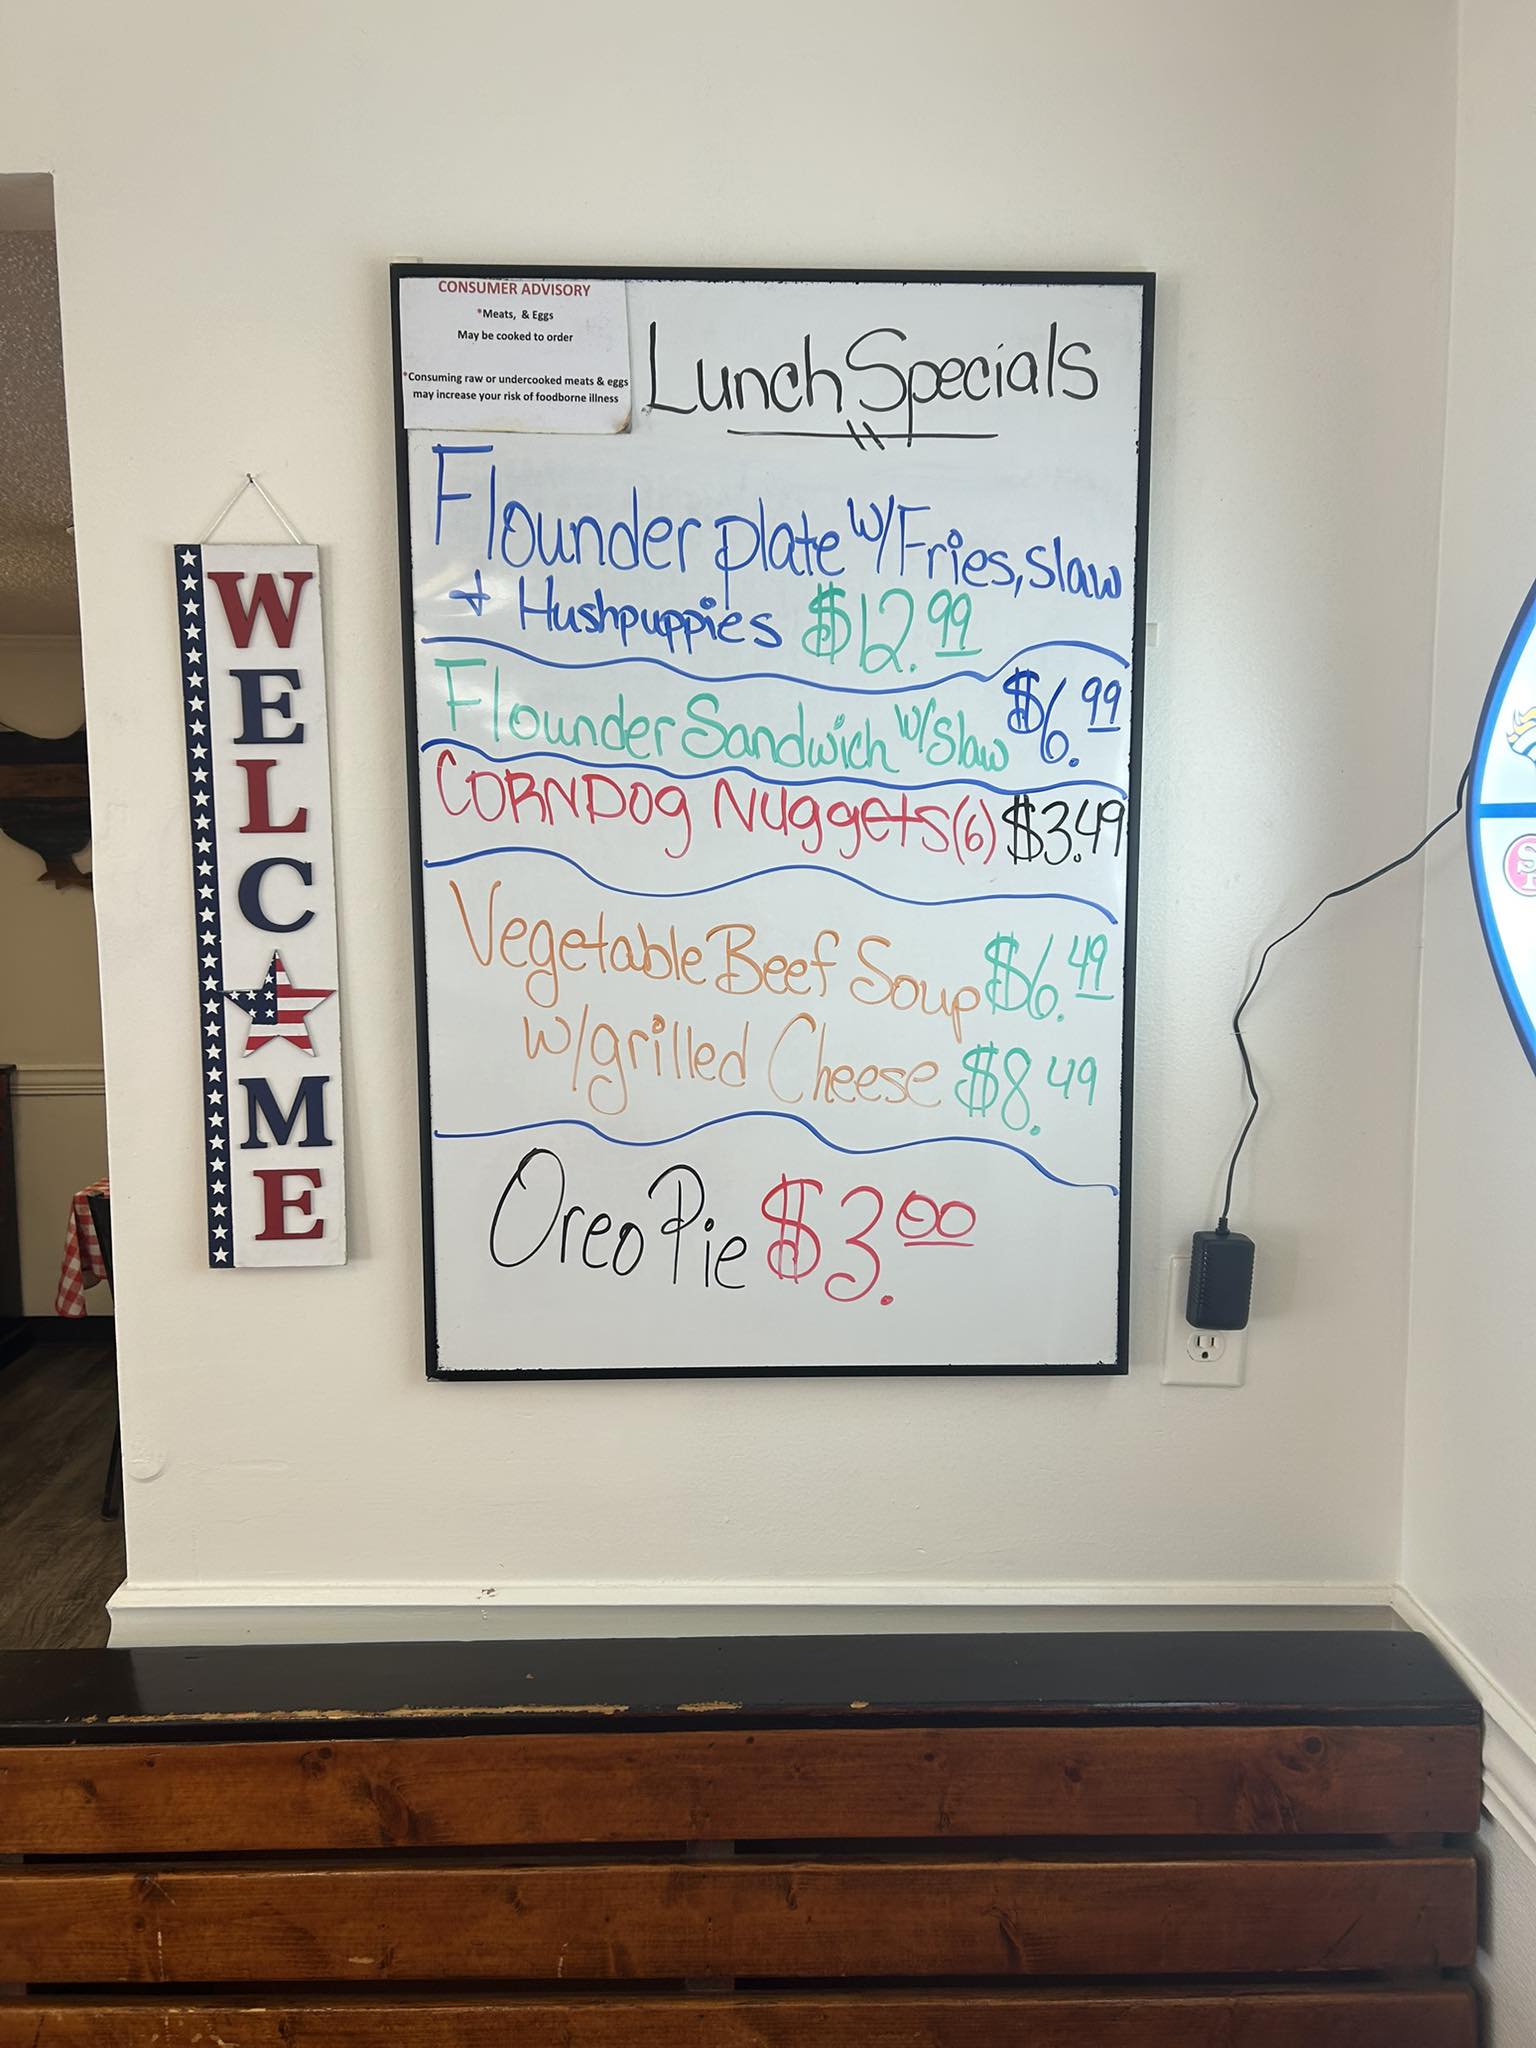 CONSUMER ADVISORY
*Meats, & Eggs
May be cooked to order
*Consuming raw or undercooked meats & eggs
may increase your risk of foodborne illness
Lunch Specials
Flounder plate w/Fries, slaw
+ Hushpuppies $12.99
Flounder Sandwich w/slaw $6.99
CORNDOg NuggetS (6) $3.49
Vegetable Beef Soup $6.49
w/grilled Cheese $8.49
Oreo Pie $3.00
WELC★ME